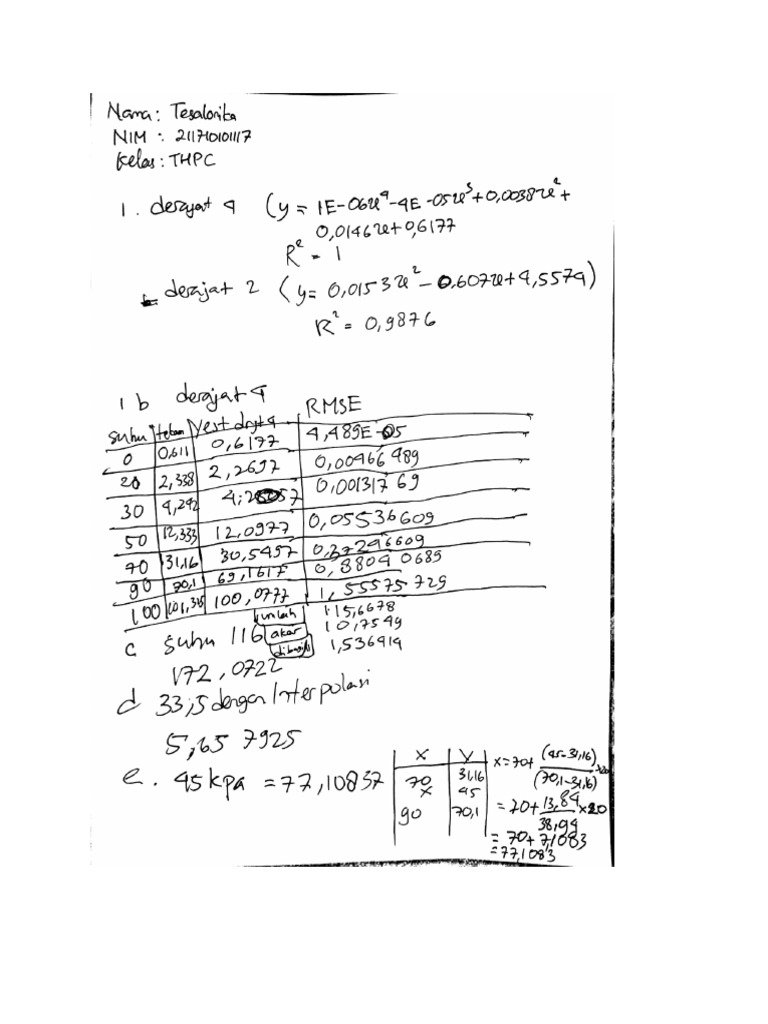 Nama: Tesalonika
NIM : 211710101117
Kelas: THPC
1. derajat 4 (y = 1E-06x⁴-4E-05x³+0,0038x²+
0,0146x+0,6177
R² = 1
derajat 2 (y= 0,0153x² - 0.607x+4,5574)
R² = 0,9876
1 b derajat 4
RMSE
suhu tekan Yest drjt 4
0 0,611 0,6177 4,489E-05
20 2,338 2,2697 0,00466489
30 4,242 0,00131769
50 12,333 12,0977 0,05536609
70 31,16 30,5497 0,37246609
90 70,1 69,1617 0,88040689
100 101,325 100,0777 1,55575729
jumlah 115,6678
akar 10,7549
1,536414
c suhu 116
172,0722
d 33,5 dengan Interpolasi
5,657925
e. 45 kpa = 77,10837
x y
70 31,16
x 45
90 70,1
x=70+ (45-31,16)/(70,1-31,16) x20
= 70+ 13,84/38,94 x20
= 70+7,1083
=77,1083